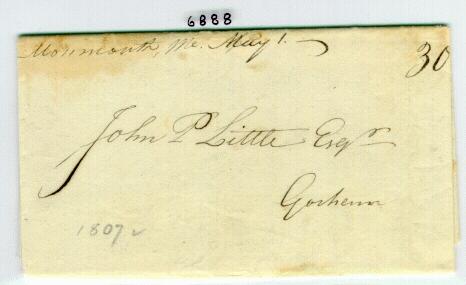 6888
Monmouth, Me. May 1.
30
John P Little Esqr
Gorham
1807